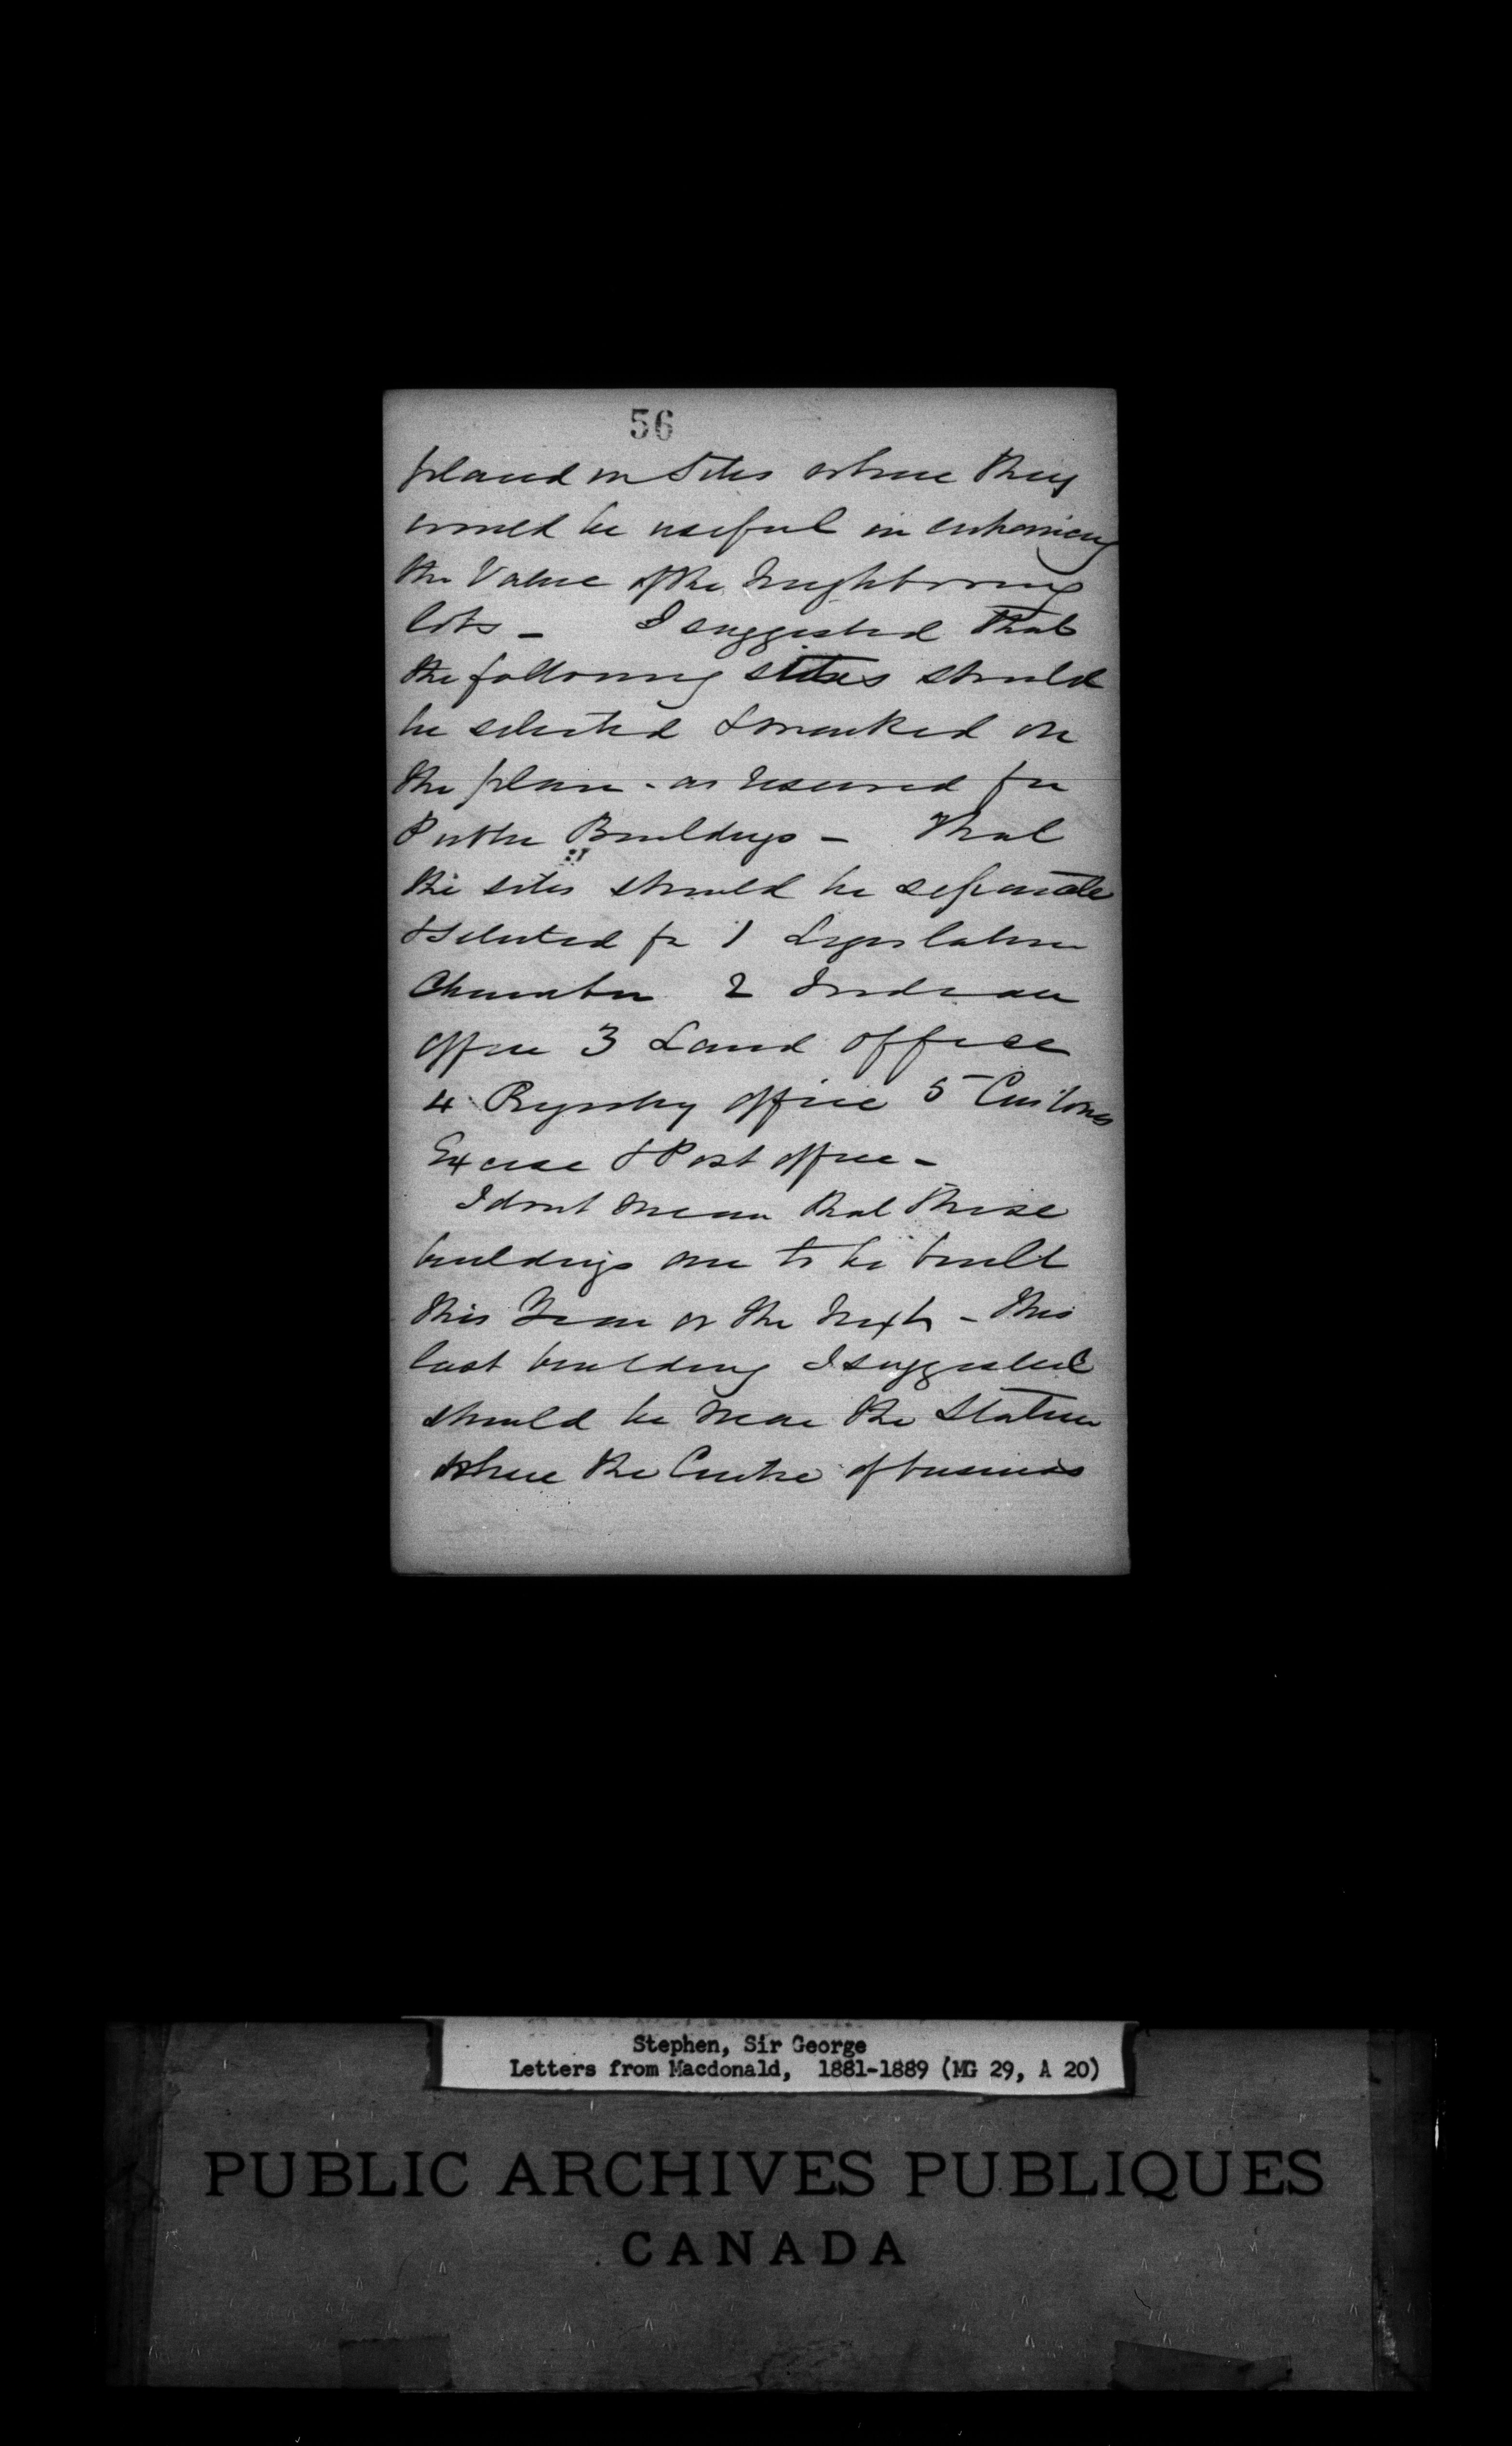 56
placed on sites where they
would be useful in enhancing
the value of the neighbouring
lots - I suggested that
the following sites should
be selected & marked on
the plan - as reserved for
Public Buildings - That
the sites should be separate
& selected for 1 Legislative
Chamber 2 Indian
office 3 Land office
4 Registry office 5 Customs
Excise & Post office -
I dont mean that these
buildings are to be built
this Year or the next - This
last building I suggested
should be near the Station
where the Centre of business
Stephen, Sir George
Letters from Macdonald, 1881-1889 (MG 29, A 20)
PUBLIC ARCHIVES PUBLIQUES
CANADA